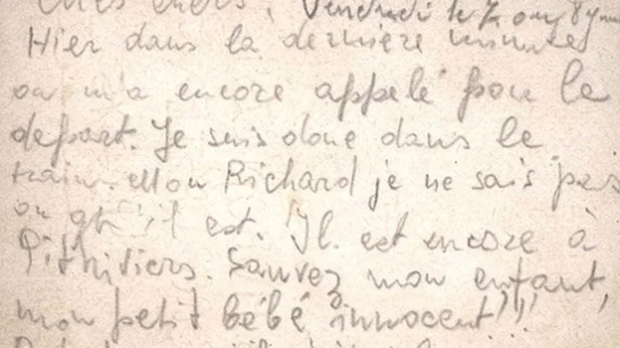 Mes chers, Vendredi le 7 ou 8
Hier dans la derniere minutes
on m'a encore appelé pour le
depart. Je suis donc dans le
train. Mon Richard je ne sais pas
ou il est. Il est encore à
Pithiviers. Sauvez mon enfant,
mon petit bébé innocent!!!